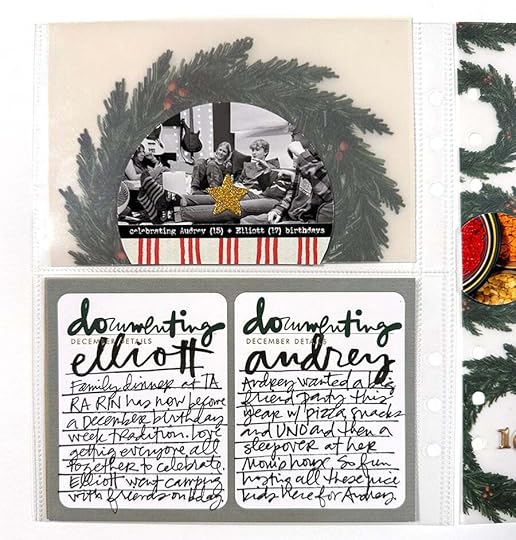 celebrating Audrey (15) + Elliott (17) birthdays
documenting
DECEMBER DETAILS
elliott
Family dinner at TA
RA RIN has now become
a December birthday
week tradition. Love
getting everyone all
together to celebrate.
Elliott went camping
with friends on bday
documenting
DECEMBER DETAILS
audrey
Audrey wanted a big
friend party this
year w/ pizza, snacks
and UNO and then a
sleepover at her
mom's house. So fun
having all these nice
kids here for Audrey.